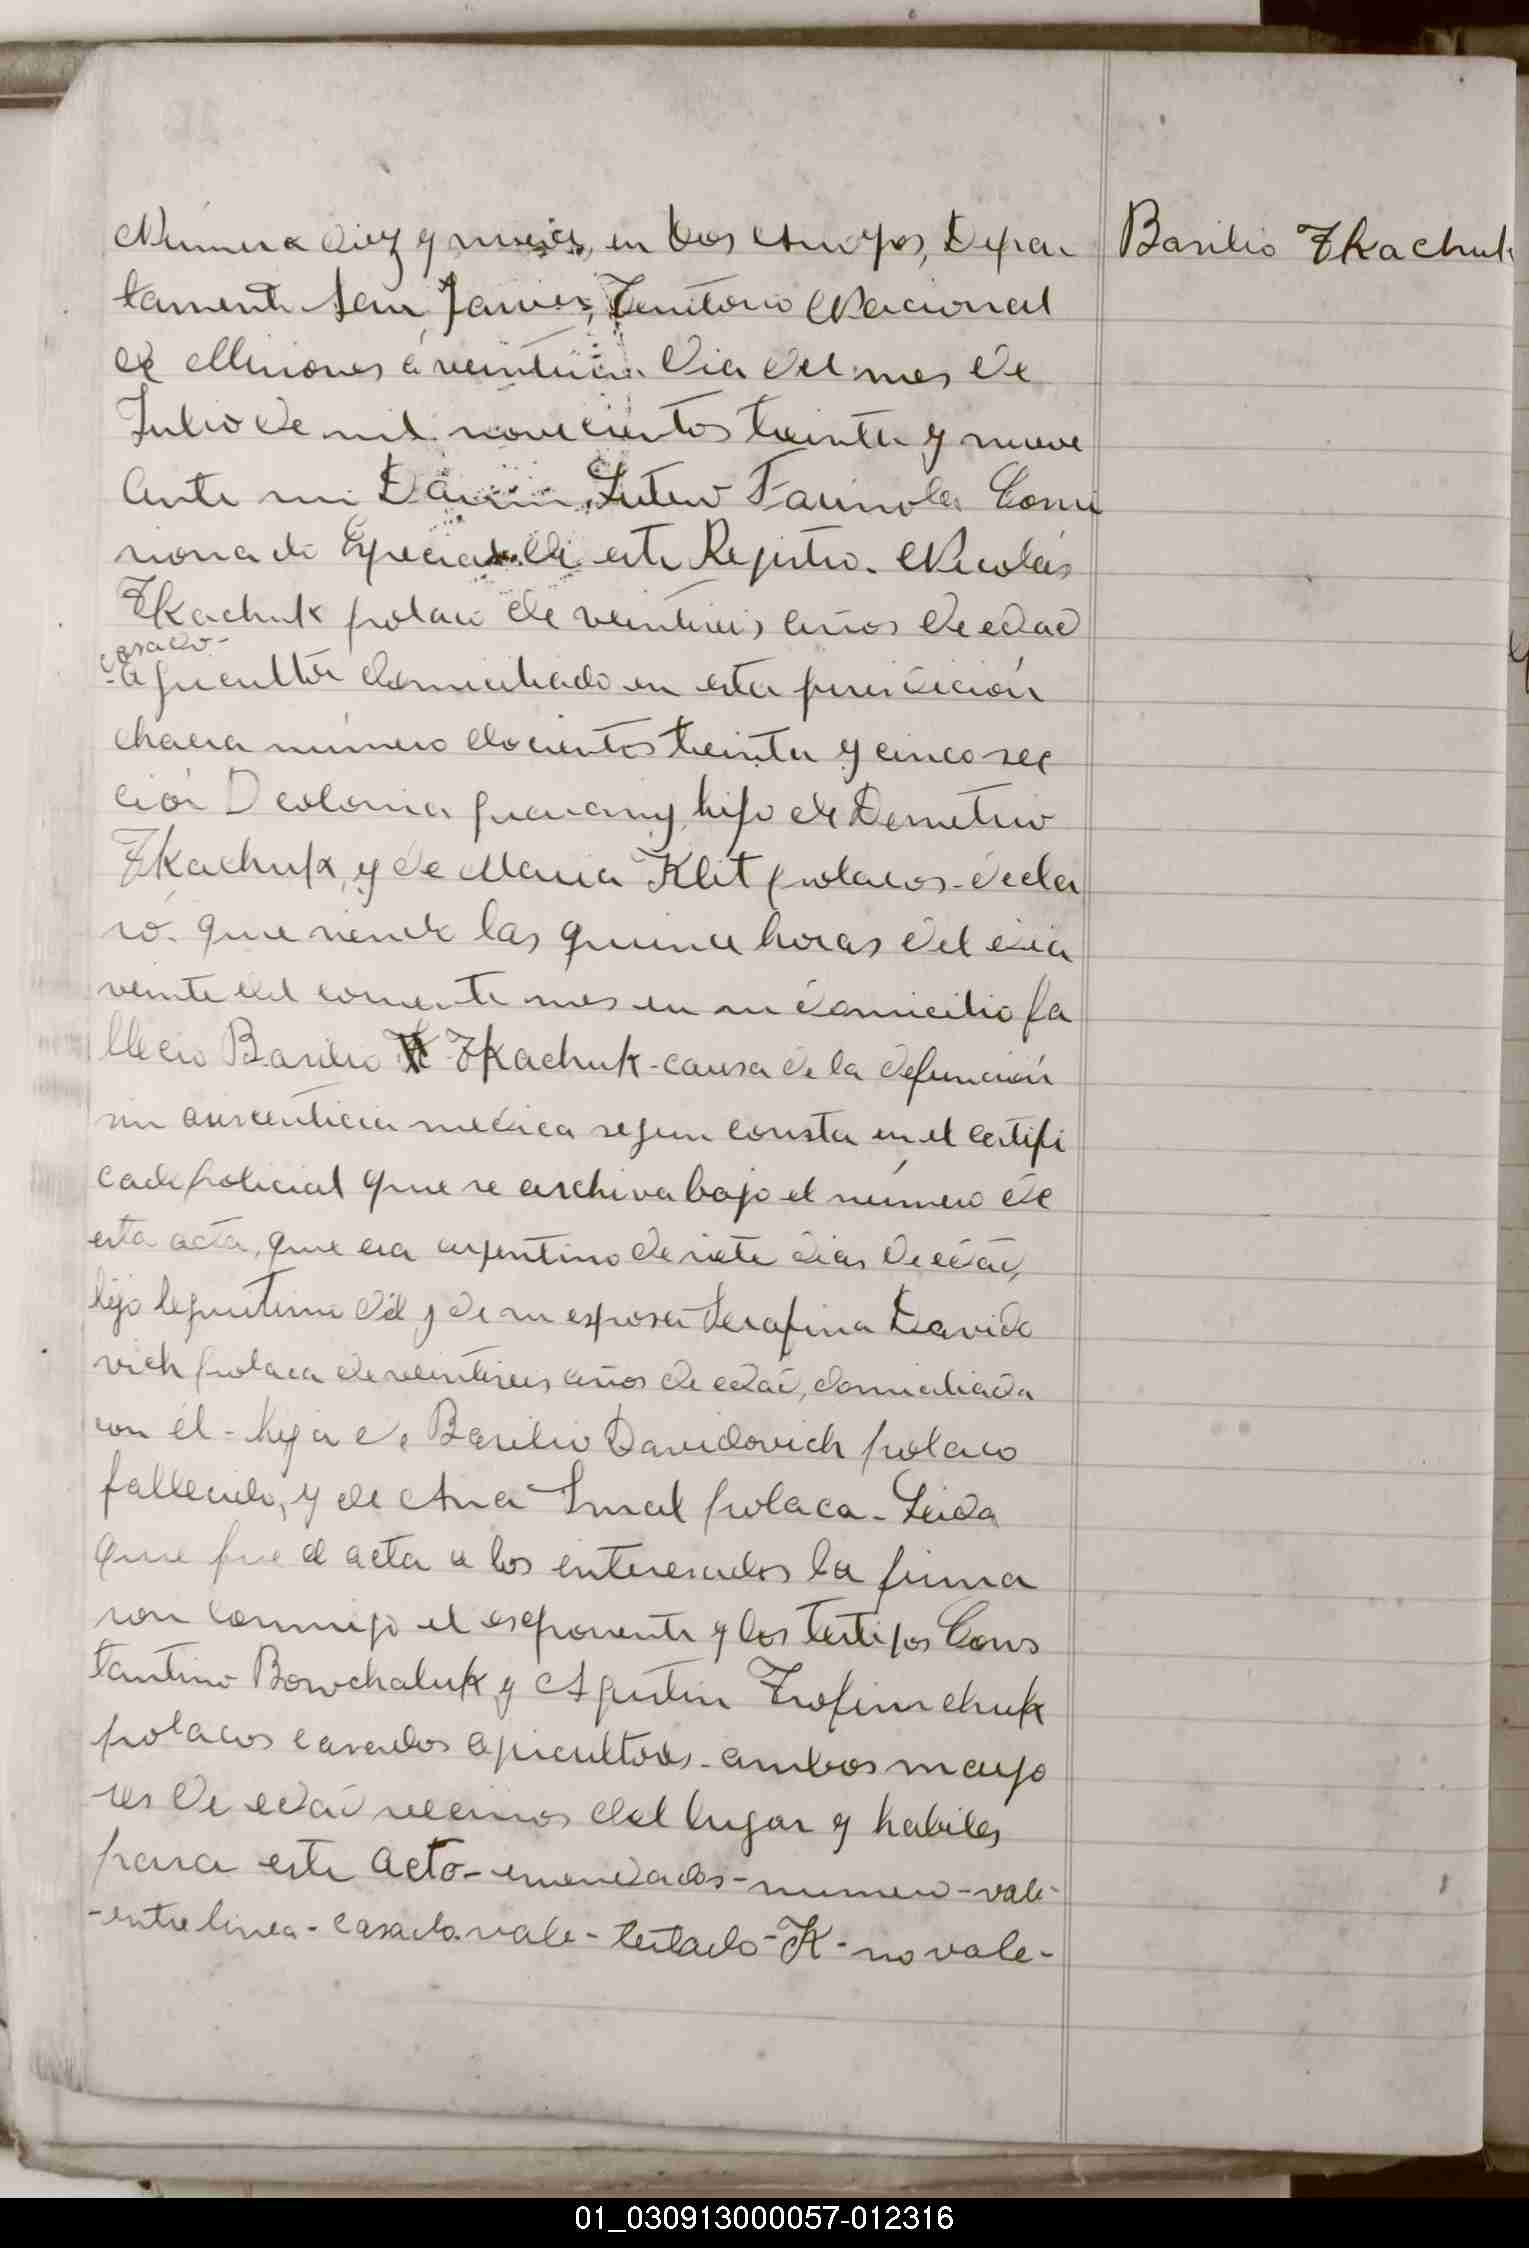 Número diez y nueve, en Dos Arroyos, Depar
Basilio Tkachuk
tamento San Javier, Territorio Nacional
de Misiones á veintiun dia del mes de
Julio de mil novecientos treinta y nueve
Ante mi Lutero Farinola Comi
sionado Especial de este Registro. Nicolás
Tkachuk polaco de veintiseis años de edad
casado-
-agricultor domiciliado en esta jurisdición
chacra número docientos treinta y cinco sec
ción D colonia guarany, hijo de Demetrio
Tkachuk, y de Maria Klit polacos-decla
ró. que siendo las quince horas del dia
veinte del corriente mes en su domicilio fa
llecio Basilio K Tkachuk-causa de la defunción
sin asistenticia medica segun consta en el certifi
cado policial que se archiva bajo el número de
esta acta, que era argentino de siete dias de edad,
hijo legitimo dél y de su esposa Serafina Davido
vich polaca de veintiseis años de edad, domiciliada
con él-hija de Basilio Davidovich polaco
fallecido, y de Ana Smal polaca-Leida
que fue el acta a los interesados la firma
ron conmigo el esponente y los testigos Cons
tantino Bowchaluk y Agustin Trofimchuk
polacos casados agricultores-ambos mayo
res de edad vecinos del lugar y habiles
para este acto-emendados-numero-vale-
-entre linea-casado.vale-testado-K-no vale-
01_030913000057-012316